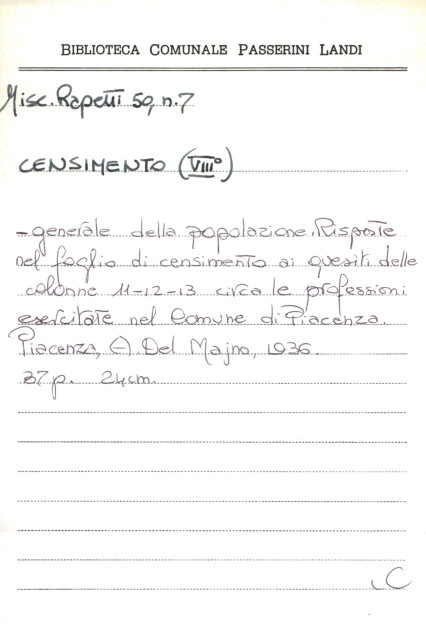 BIBLIOTECA COMUNALE PASSERINI LANDI
Misc. Rapetti 50, n. 7
CENSIMENTO (VIII°)
- generale della popolazione. Risposte
nel foglio di censimento ai quesiti delle
colonne 11-12-13 circa le professioni
esercitate nel Comune di Piacenza.
Piacenza, A. Del Majno, 1936.
37 p. 24 cm.
C